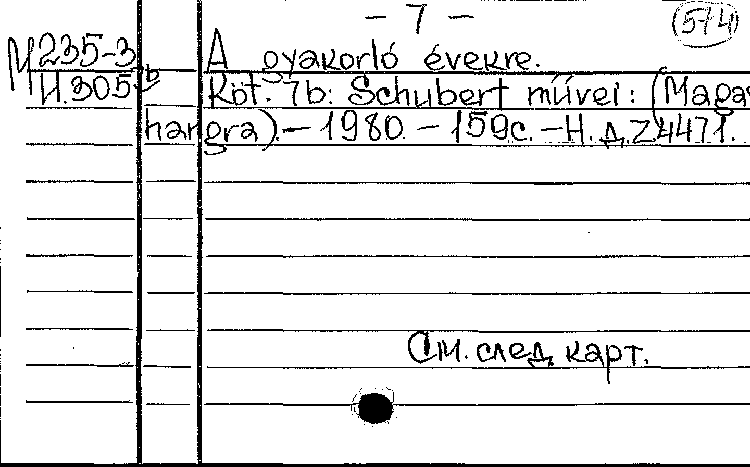 – 7 –
574
М 235-3 A gyakorló évekre.
И.305 b Köt. 7b: Schubert művei: (Magas
hangra). – 1980. – 159с. – Н.д.Z4471.
См. след. карт.